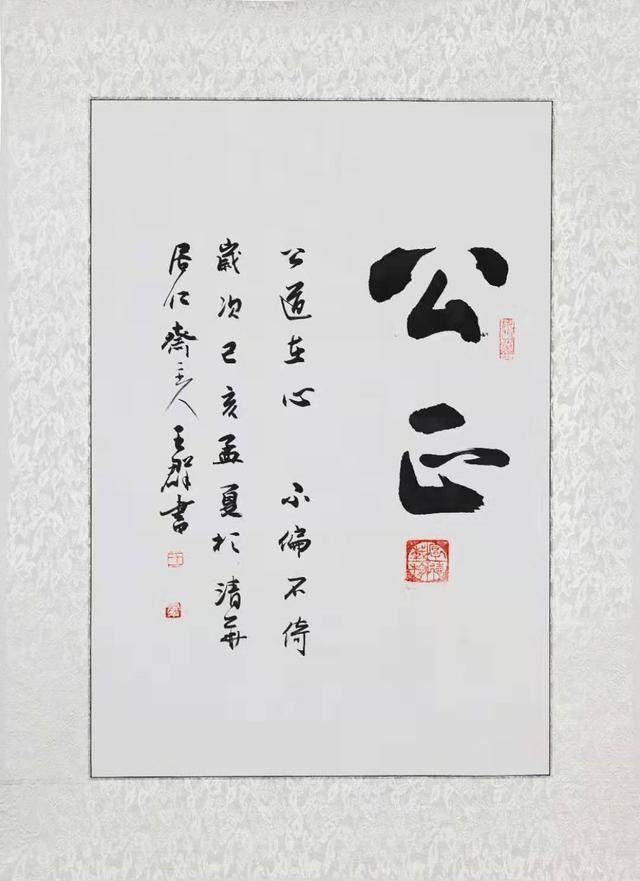 公正
公道在心 不偏不倚
歲次己亥孟夏於清华
居仁齋主人王群書